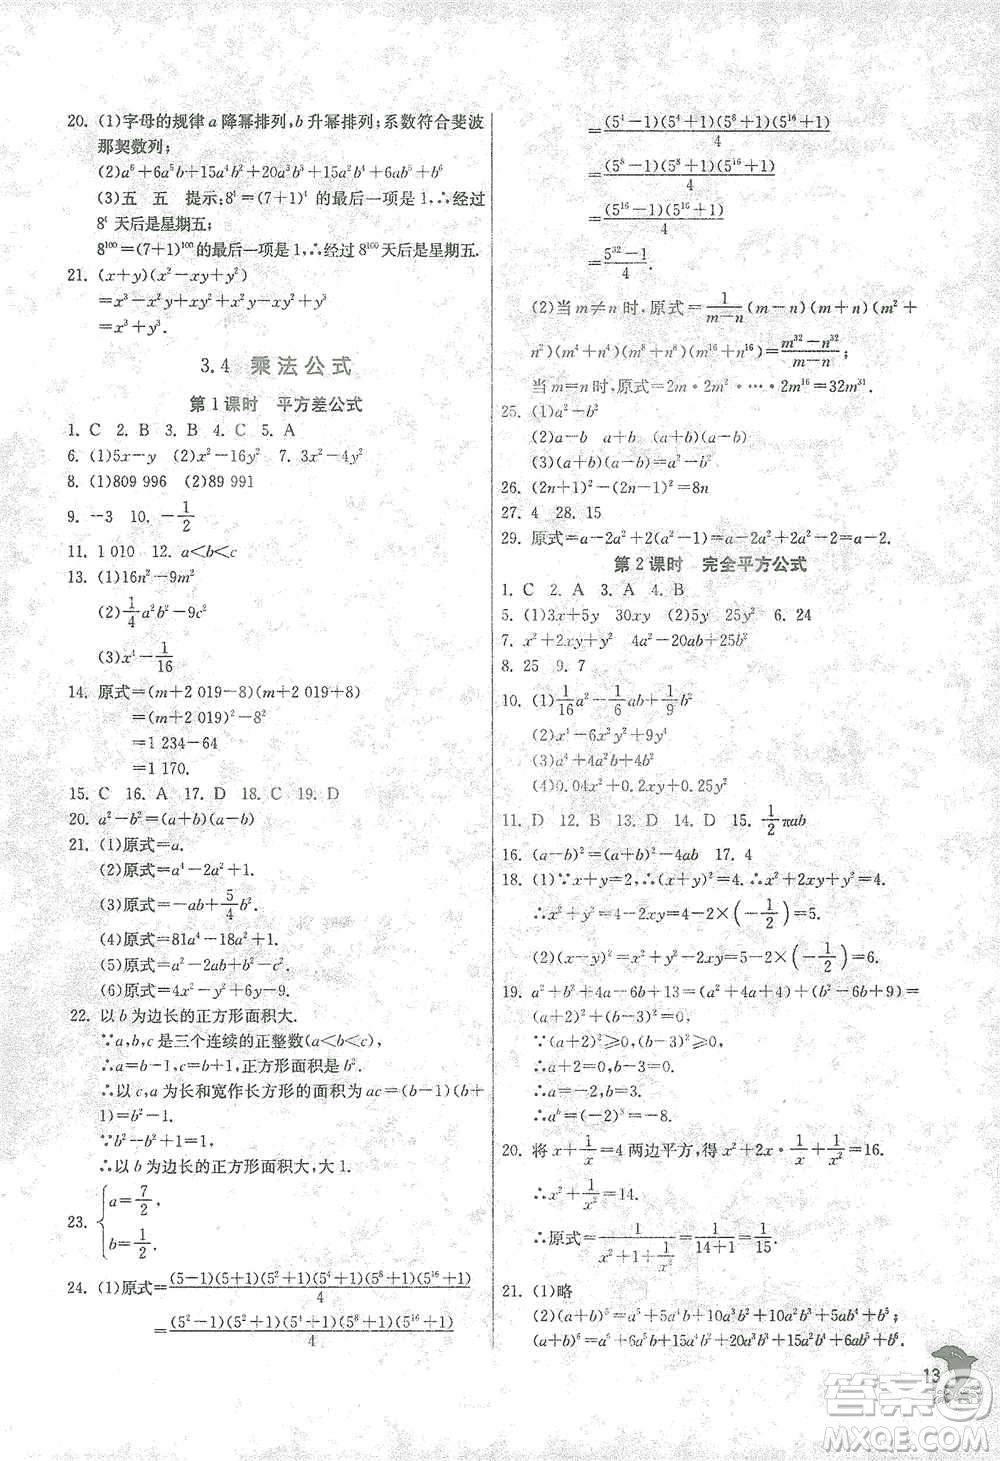 20. (1)字母的规律 a 降幂排列,b 升幂排列;系数符合斐波
那契数列;
(2)a⁶+6a⁵b+15a⁴b²+20a³b³+15a²b⁴+6ab⁵+b⁶
(3)五 五 提示:8⁴=(7+1)⁴ 的最后一项是 1,∴经过
8⁴ 天后是星期五;
8¹⁰⁰=(7+1)¹⁰⁰的最后一项是 1,∴经过 8¹⁰⁰天后是星期五.
21. (x+y)(x²-xy+y²)
=x³-x²y+xy²+x²y-xy²+y³
=x³+y³.
3.4 乘法公式
第 1 课时 平方差公式
1. C 2. B 3. B 4. C 5. A
6. (1)5x-y (2)x²-16y² 7. 3x²-4y²
8. (1)809 996 (2)89 991
9. -3 10. -1/2
11. 1 010 12. a<b<c
13. (1)16n²-9m²
(2)1/4a²b²-9c²
(3)x⁴-1/16
14. 原式=(m+2 019-8)(m+2 019+8)
=(m+2 019)²-8²
=1 234-64
=1 170.
15. C 16. A 17. D 18. C 19. D
20. a²-b²=(a+b)(a-b)
21. (1)原式=a.
(2)原式=a⁴-2a²+1.
(3)原式=-ab+5/4b².
(4)原式=81a⁴-18a²+1.
(5)原式=a²-6ab+9b²-c².
(6)原式=4x²-y²+6y-9.
22. 以 b 为边长的正方形面积大.
∵a,b,c 是三个连续的正整数(a<b<c),
∴a=b-1,c=b+1,正方形面积是 b²,
∴以 c,a 为长和宽作长方形的面积 ac=(b-1)(b+
1)=b²-1.
∵b²-b²+1=1,
∴以 b 为边长的正方形面积大,大 1.
23. {a=7/2,
b=1/2.
24. (1)原式=(5-1)(5+1)(5²+1)(5⁴+1)(5⁸+1)(5¹⁶+1)/4
=(5²-1)(5²+1)(5⁴+1)(5⁸+1)(5¹⁶+1)/4
=(5⁴-1)(5⁴+1)(5⁸+1)(5¹⁶+1)/4
=(5⁸-1)(5⁸+1)(5¹⁶+1)/4
=(5¹⁶-1)(5¹⁶+1)/4
=5³²-1/4.
(2)当 m≠n 时,原式=1/m-n(m-n)(m+n)(m²+
n²)(m⁴+n⁴)(m⁸+n⁸)(m¹⁶+n¹⁶)=m³²-n³²/m-n;
当 m=n 时,原式=2m·2m²·…·2m¹⁶=32m³¹.
25. (1)a²-b²
(2)a-b a+b (a+b)(a-b)
(3)(a+b)(a-b)=a²-b²
26. (2n+1)²-(2n-1)²=8n
27. 4 28. 15
29. 原式=a-2a²+2(a²-1)=a-2a²+2a²-2=a-2.
第 2 课时 完全平方公式
1. C 2. A 3. A 4. B
5. (1)3x+5y 30xy (2)5y 25y² 6. 24
7. x²+2xy+y² 4a²-20ab+25b²
8. 25 9. 7
10. (1)1/16a²-1/6ab+1/9b²
(2)x⁴-6x²y²+9y⁴
(3)a⁴+4a²+4
(4)0.04x²+2xy+25y²
11. D 12. B 13. C 14. D 15. 1/2πab
16. (a-b)²=(a+b)²-4ab 17. 4
18. (1)∵x+y=2,∴(x+y)²=4.∴x²+y²+2xy=4.
∴x²+y²=4-2xy=4-2×(-1/2)=5.
(2)(x-y)²=x²+y²-2xy=5-2×(-1/2)=6.
19. a²+b²+4a-6b+13=(a²+4a+4)+(b²-6b+9)=
(a+2)²+(b-3)²=0,
∵(a+2)²⩾0,(b-3)²⩾0,
∴a+2=0,b-3=0,
∴a=-2,b=3.
∴aᵇ=(-2)³=-8.
20. 将 x+1/x=4 两边平方,得 x²+2x·1/x+1/x²=16.
∴x²+1/x²=14.
∴原式=1/x²+1+1/x²=1/14+1=1/15.
21. (1)略
(2)(a+b)⁵=a⁵+5a⁴b+10a³b²+10a²b³+5ab⁴+b⁵;
(a+b)⁶=a⁶+6a⁵b+15a⁴b²+20a³b³+15a²b⁴+6ab⁵+b⁶.
13
答案
MXQE.COM